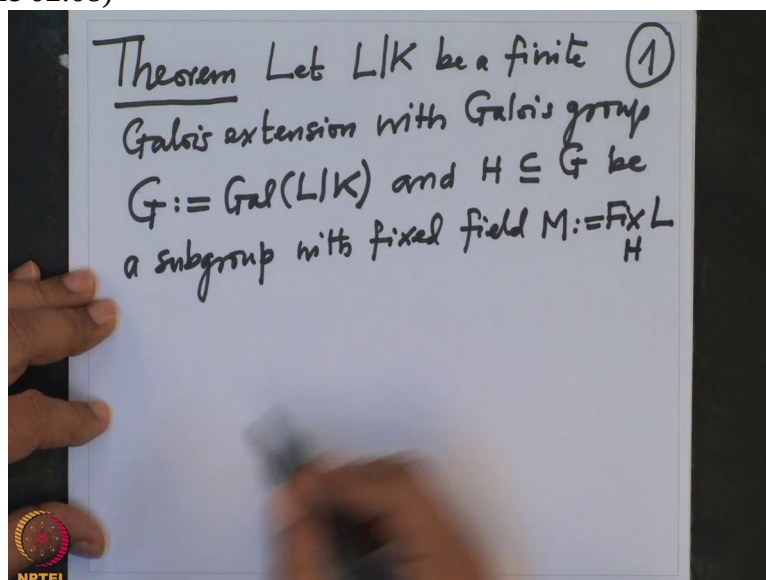 Theorem Let L|K be a finite ①
Galois extension with Galois group
G := Gal(L|K) and H ⊆ G be
a subgroup with fixed field M := Fix L
H
NPTEL